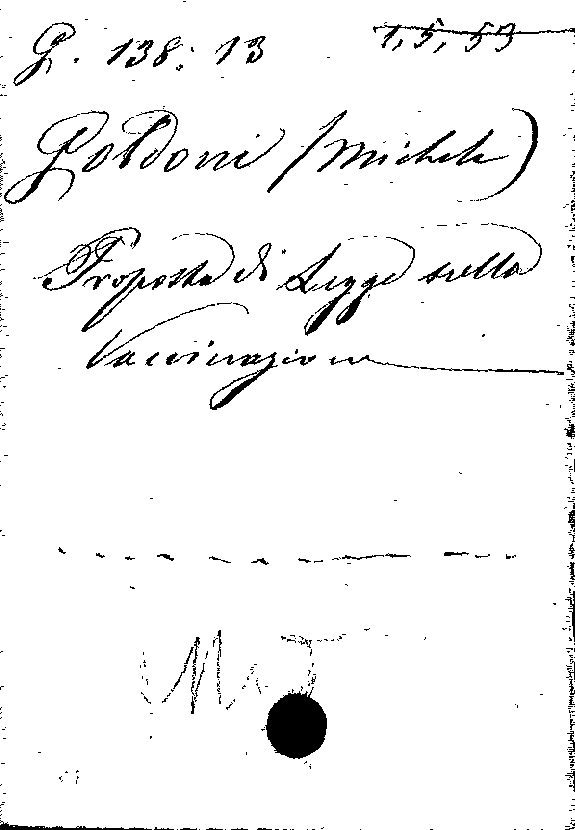 G. 138: 13 1, 5, 53
Goldoni (Michele)
Proposta di Legge sulla
Vaccinazione